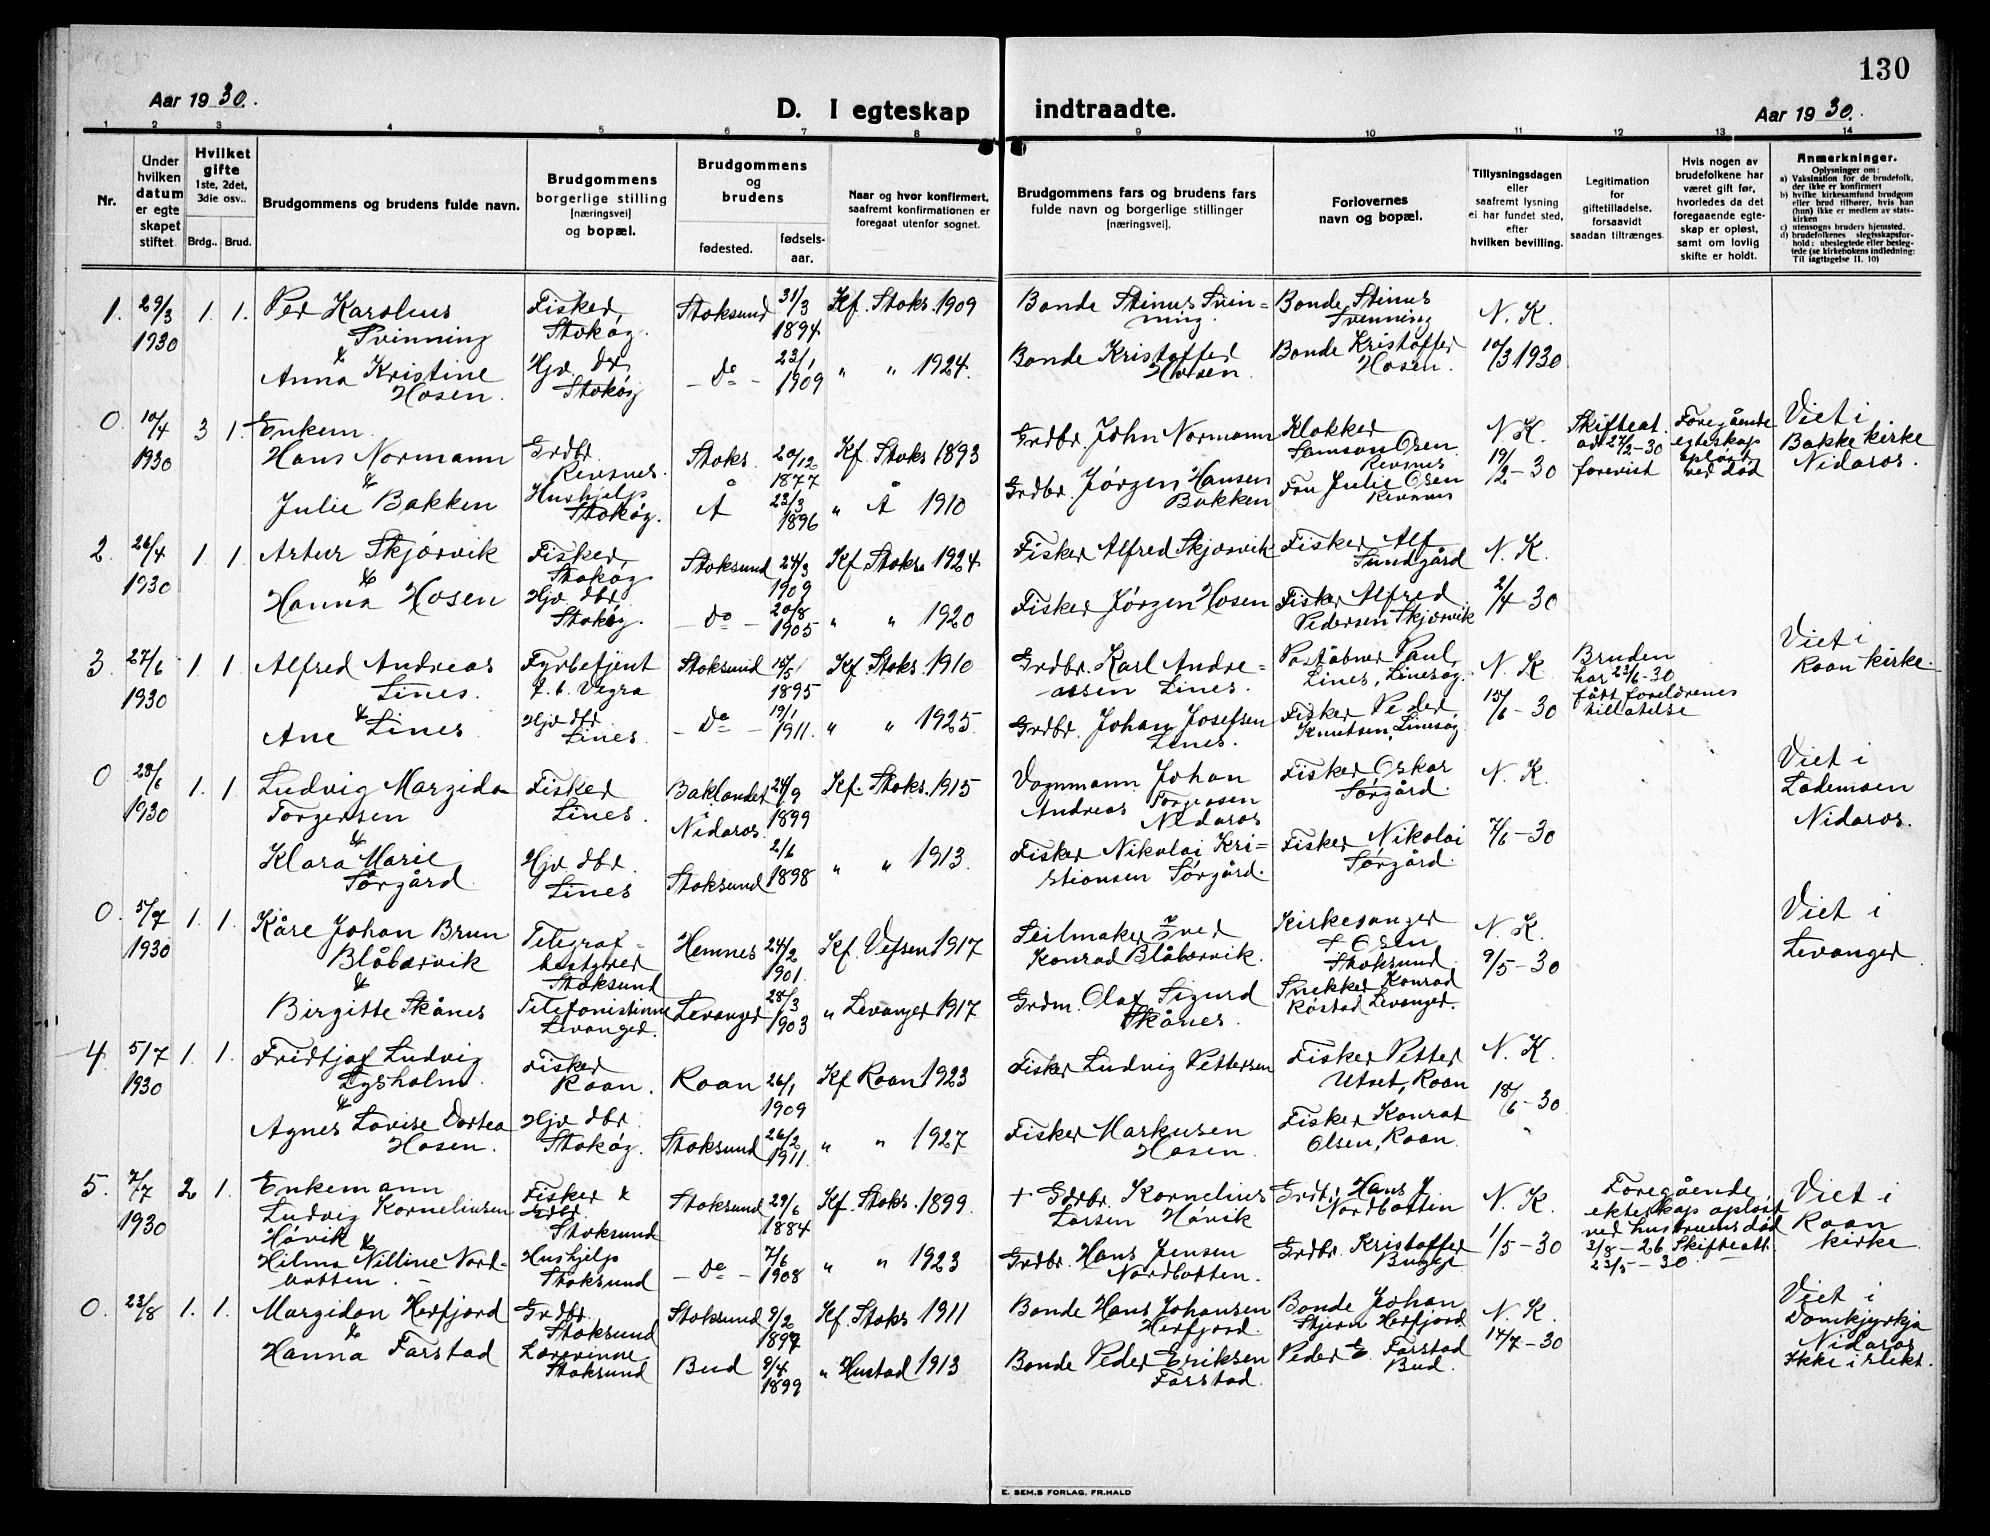 130
Aar 1930.
D. I egteskap indtraadte.
Aar 1930.
1 2 3 4 5 6 7 8 9 10 11 12 13 14
Nr.
Under hvilken datum er egte skapet stiftet.
Hvilket gifte 1ste, 2det, 3die osv..
Brdg.. Brud.
Brudgommens og brudens fulde navn.
Brudgommens borgerlige stilling [næringsvei] og bopæl.
Brudgommens og brudens
fødested. fødsels-aar.
Naar og hvor konfirmert, saafremt konfirmationen er foregaat utenfor sognet.
Brudgommens fars og brudens fars fulde navn og borgerlige stillinger [næringsvei].
Forlovernes navn og bopæl.
Tillysningsdagen eller saafremt lysning ei har fundet sted, efter hvilken bevilling.
Legitimation for giftetilladelse, forsaavidt saadan tiltrænges.
Hvis nogen av brudefolkene har været gift før, hvorledes da det foregaaende egte-skap er opløst, samt om lovlig skifte er holdt.
Anmerkninger.
Oplysninger om:
a) Vaksination for de brudefolk, der ikke er konfirmert
b) hvilke kirkesamfund brudgom eller brud tilhører, hvis han (hun) ikke er medlem av stats-kirken
c) utensogns bruders hjemsted.
d) brudefolkenes slegtsskapsfor-hold: ubeslegtede eller besleg-tede (se kirkebokens indledning: Til iagttagelse II. 10)
1. 29/3 1930 1. 1.
Per Karolius Svinning
&
Anna Kristine Hosen.
Fisker, Stokøy.
Hjv. dtr, Stokøy
Stoksund 31/3 1894
– Do – 23/1 1909
Kf. Stoks. 1909
" " 1924.
Bonde Stinus Svin-ning.
Bonde Kristoffer Hosen.
Bonde Stinus Svinning
Bonde Kristoffer Hosen.
N. K.
10/3 1930
0 10/4 1930 3 1.
Enkem. Hans Normann
&
Julie Bakken
Grdbr. Revsnes.
Hushjelp Stokøy.
Stoks. 20/12 1877
Å 23/3 1896
Kf. Stoks 1893
" Å 1910
Grdbr. John Normann
Grdbr. Jørgen Hansen Bakken
Klokker Samson Olsen Revsnes
Fru Julie Olsen Revsnes
N. K.
19/2–30
Skifteat. av 27/2–30 forevist
Foregående egteskap opløst ved død
Viet i Bakke kirke Nidaros.
2. 26/4 1930 1 1
Artur Skjørvik
&
Hanna Hosen
Fisker, Stokøy
Hjv dtr Stokøy.
Stoksund 24/3 1909
– Do – 20/8 1905
Kf. Stoks. 1924
" " 1920
Fisker Alfred Skjørvik
Fisker Jørgen Hosen
Fisker Alf Sundgård
Fisker Alfred Pedersen Skjørvik
N. K.
2/4–30
3. 27/6 1930 1 1
Alfred Andreas Lines.
&
Ane Lines
Fyrbetjent f. t. Vigra
Hjv dtr. Lines.
Stoksund 15/5 1895
– Do – 19/1 1911.
Kf. Stoks. 1910
" " 1925.
Grdbr. Karl Andre-assen Lines.
Grdbr. Johan Josefsen Lines.
Poståbner Paul Lines, Linesøy.
Fisker Peder Knutsen, Linesøy
N. K
15/6–30
Bruden har 23/6–30 fått foreldrenes tillatelse
Viet i Roan kirke.
0 28/6 1930 1. 1
Ludvig Margido Torgersen
&
Klara Marie Sørgård
Fisker Lines.
Hjv dtr. Lines
Baklandet Nidaros. 24/9 1899
Stoksund 2/6 1898
Kf. Stoks. 1915
" " 1913.
Vognmann Johan Andreas Torgersen Nidaros
Fisker Nikolai Kri-stiansen Sørgård.
Fisker Oskar Sørgård.
Fisker Nikolai Sørgård.
N. K.
7/6–30
Viet i Lademoen Nidaros.
0. 5/7 1930 1. 1.
Kåre Johan Brun Blåbærvik
&
Birgitte Skånes
Telegraf-bestyrer Stoksund
Telefonistinne Levanger.
Hemnes 24/2 1901.
Levanger 28/3 1903
Kf. Vefsen 1917
" Levanger 1917
Seilmaker Iver Konrad Blåbærvik.
Grdm. Olaf Sigurd Skånes.
Kirkesanger Olsen Stoksund
Snekker Konrad Røstad Levanger.
N. K.
9/5–30
Viet i Levanger
4. 5/7 1930 1. 1.
Fridtjof Ludvig Lysholm.
&
Agnes Lovise Dortea Hosen.
Fisker Roan.
Hjv. dtr. Stokøy.
Roan 26/1 1909
Stoksund 26/2 1911.
Kf Roan 1923
" " 1927
Fisker Ludvig Pettersen
Fisker Markusen Hosen.
Fisker Petter Utset, Roan
Fisker Konrat Olsen, Roan.
N. K.
18/6–30
5. 7/7 1930 2 1.
Enkemann Ludvig Korneliusen Høvik &
Hilma Nilline Nord-botten. –
Fisker & Grdbr. Stoksund
Hushjelp Stoksund
Stoksund 29/6 1884
– Do – 7/6 1908
Kf. Stoks. 1899
" " 1923
+ Grdbr. Kornelius Larsen Høvik
Grdbr. Hans Jensen Nordbotten.
Grdbr. Hans J. Nordbotten
Grdbr. Kristoffer
N. K.
1/5–30
Foregående ekteskap opløst ved hustruens død 3/8–26 Skifteatt. 23/5–30
Viet i Roan kirke
0. 23/8 1. 1.
Margidon Herfjord
&
Hanna Farstad
Grdbr. Stoksund
Lærerinne Stoksund
Stoksund 9/2 1897
Bud 9/4 1899
Kf Stoks 1911
" Hustad 1913
Bonde Hans Johansen Herfjord.
Bonde Peder Eriksen Farstad.
Bonde Johan Stjern Herfjord
Peder E. Farstad Bud.
N. K.
17/7–30
Viet i Domkjyrkja Nidaros Ikke i slekt.
E. SEM.S FORLAG. FR.HALD